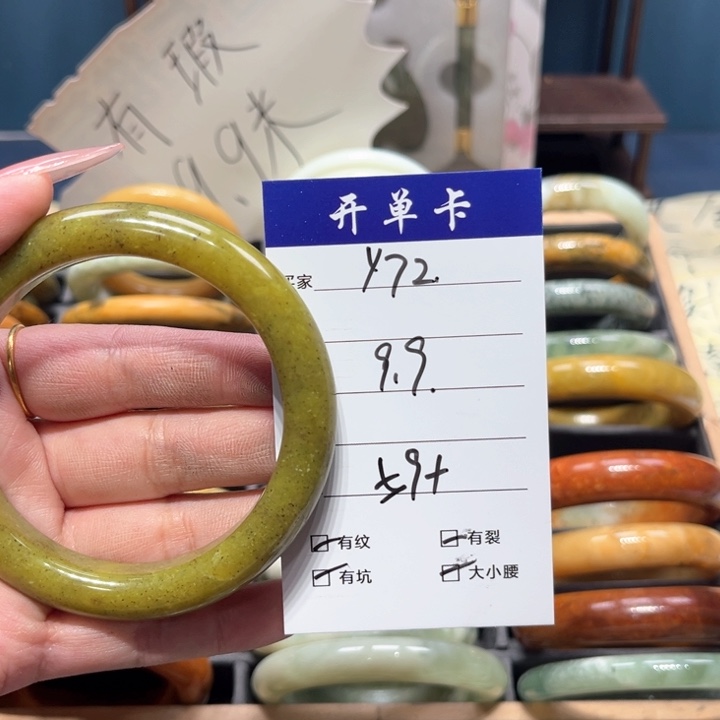 有瑕
9.9米
开单卡
买家 Y72.
9.9.
59+
有纹 有裂
有坑 大小腰